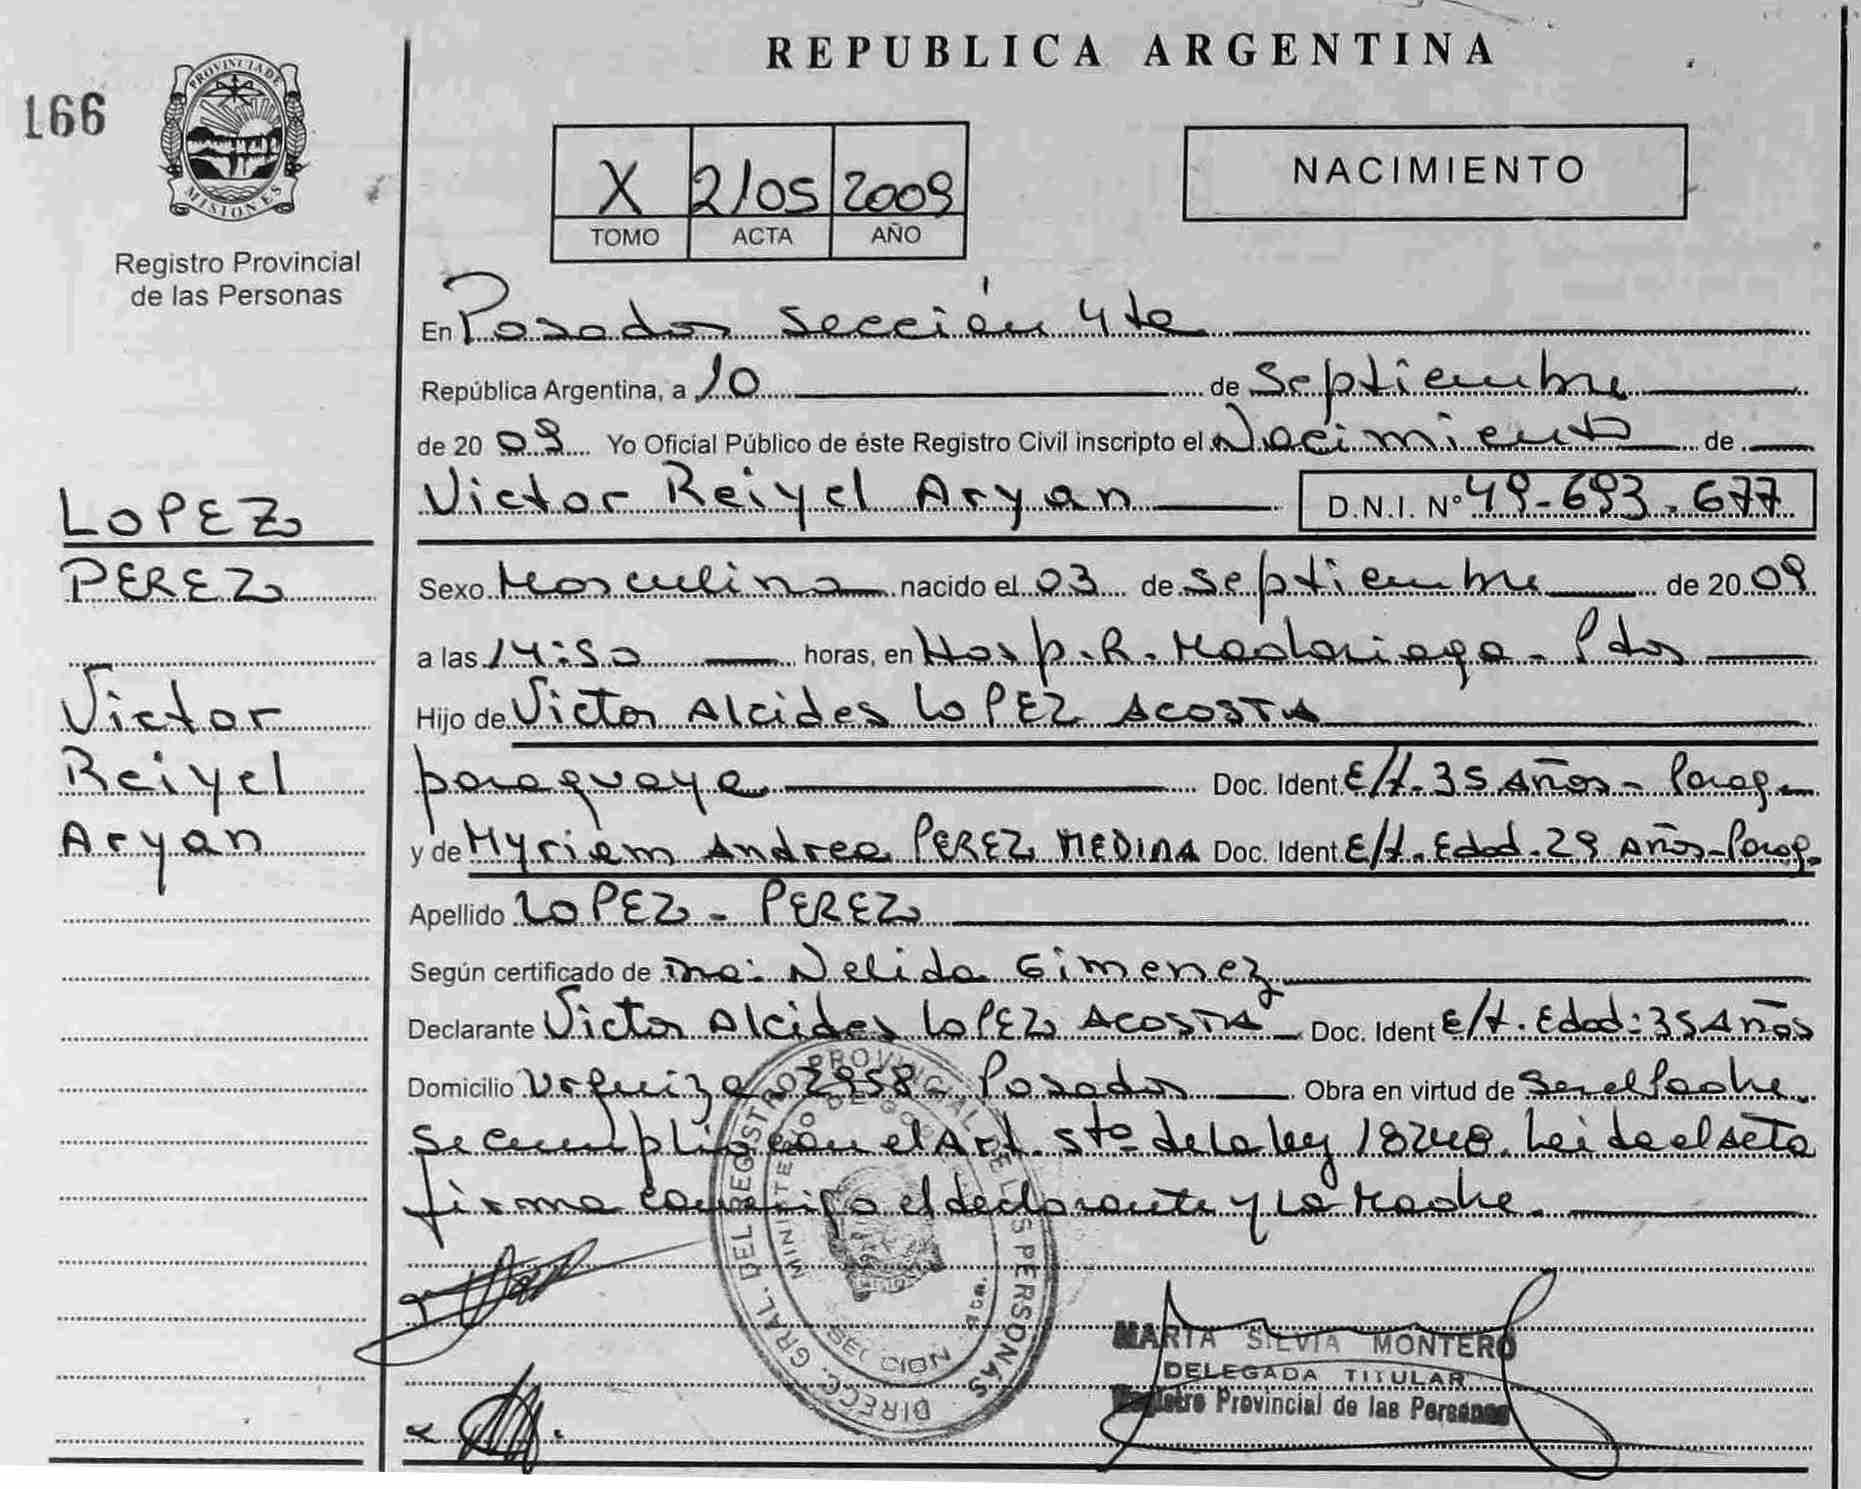 166
PROVINCIA DE
MISIONES
Registro Provincial
de las Personas
LOPEZ
PEREZ
Victor
Reiyel
Aryan
REPUBLICA ARGENTINA
X 2105 2009
TOMO ACTA AÑO
NACIMIENTO
En Posadas Sección 4ta
República Argentina, a 10 de Septiembre
de 20 09 Yo Oficial Público de éste Registro Civil inscripto el Nacimiento de
Victor Reiyel Aryan D.N.I. Nº 49-693.677
Sexo Masculino nacido el 03 de Septiembre de 20 09
a las 14:50 horas, en Hosp. R. Madariaga - Pdas
Hijo de Victor Alcides LOPEZ ACOSTA
paraguaya Doc. Ident E/t. 35 Años - Parag.
y de Myriam Andrea PEREZ MEDINA Doc. Ident E/t. Edad. 29 Años - Parag.
Apellido LOPEZ - PEREZ
Según certificado de Nelida Gimenez
Declarante Victor Alcides LOPEZ ACOSTA Doc. Ident E/t. Edad: 35 Años
Domicilio Urquiza 2958 Posadas Obra en virtud de Ser el Padre.
Se cumplió con el Art. 5to de la ley 18248. Leida el acta
firma conmigo el declarante y la Madre.
DIRECC. GRAL. DEL REGISTRO PROVINCIAL DE LAS PERSONAS
MINISTERIO DE GOB
SECCION 4ta.
MARTA SILVIA MONTERO
DELEGADA TITULAR
Registro Provincial de las Personas